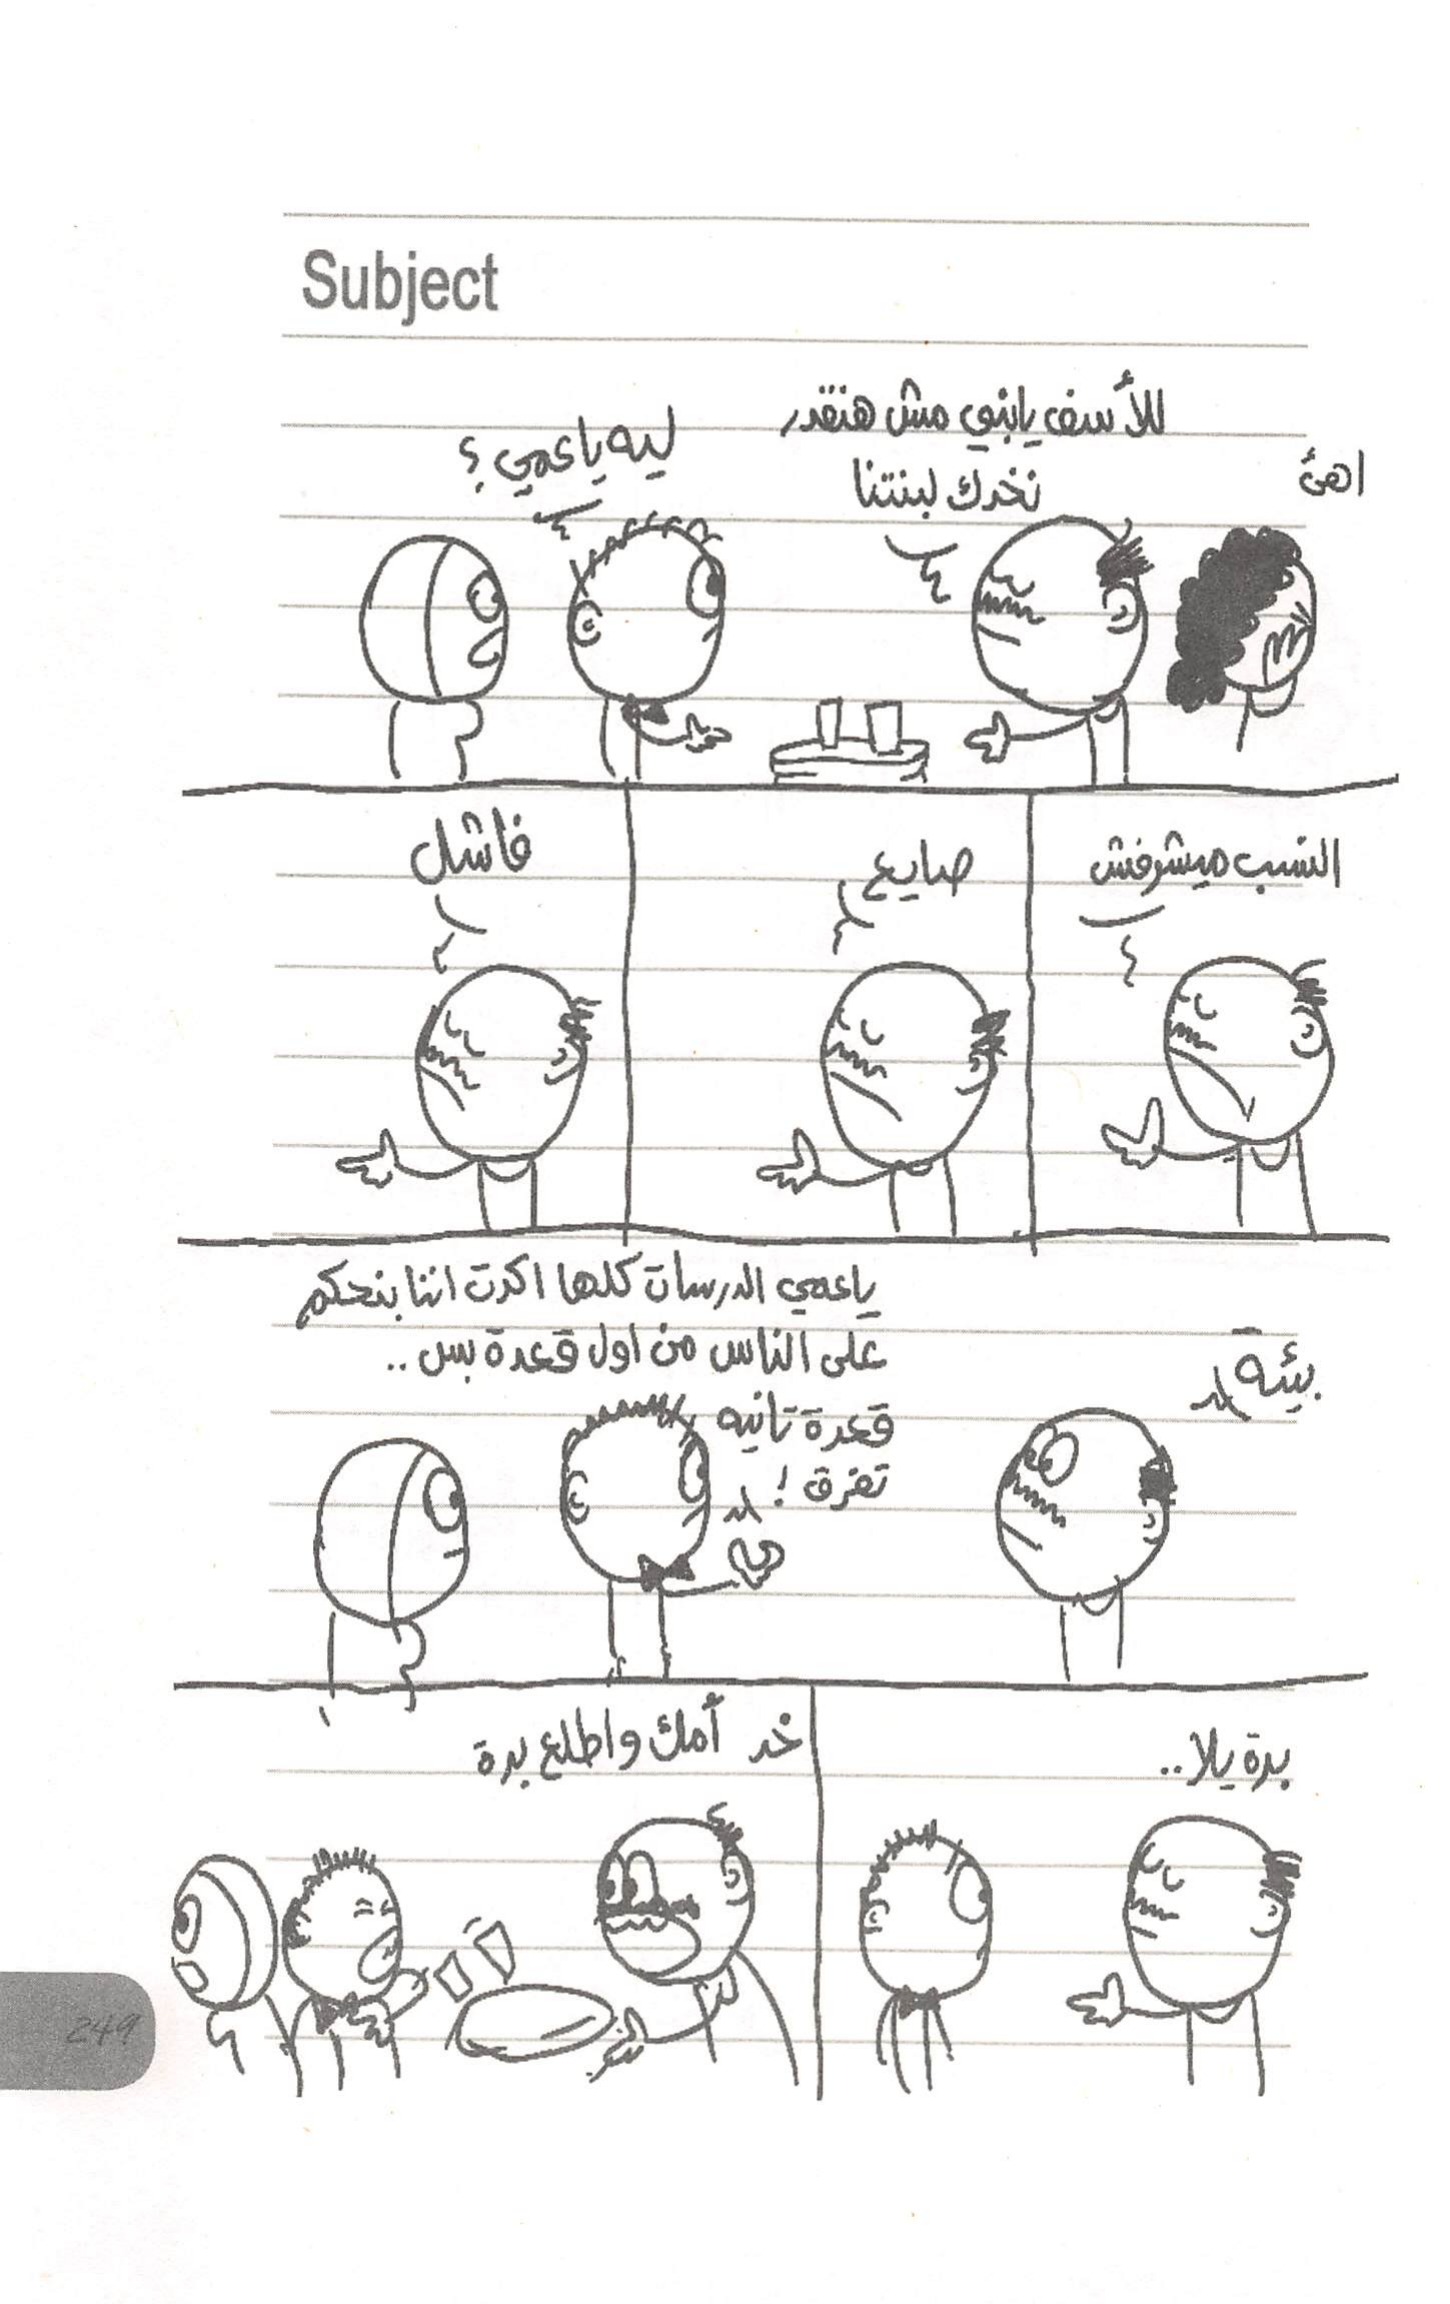 Subject
اهئ
للأسف يابني مش هنقدر
نخدك لبنتنا
ليه ياعمي؟
النسب ميشرفش
صايع
فاشل
بيئه
ياعمي الدرسات كلها اكدت اننا بنحكم
على الناس من اول قعدة بس..
قعدة تانيه
تفرق!
برة يلا..
خد أمك واطلع برة
249